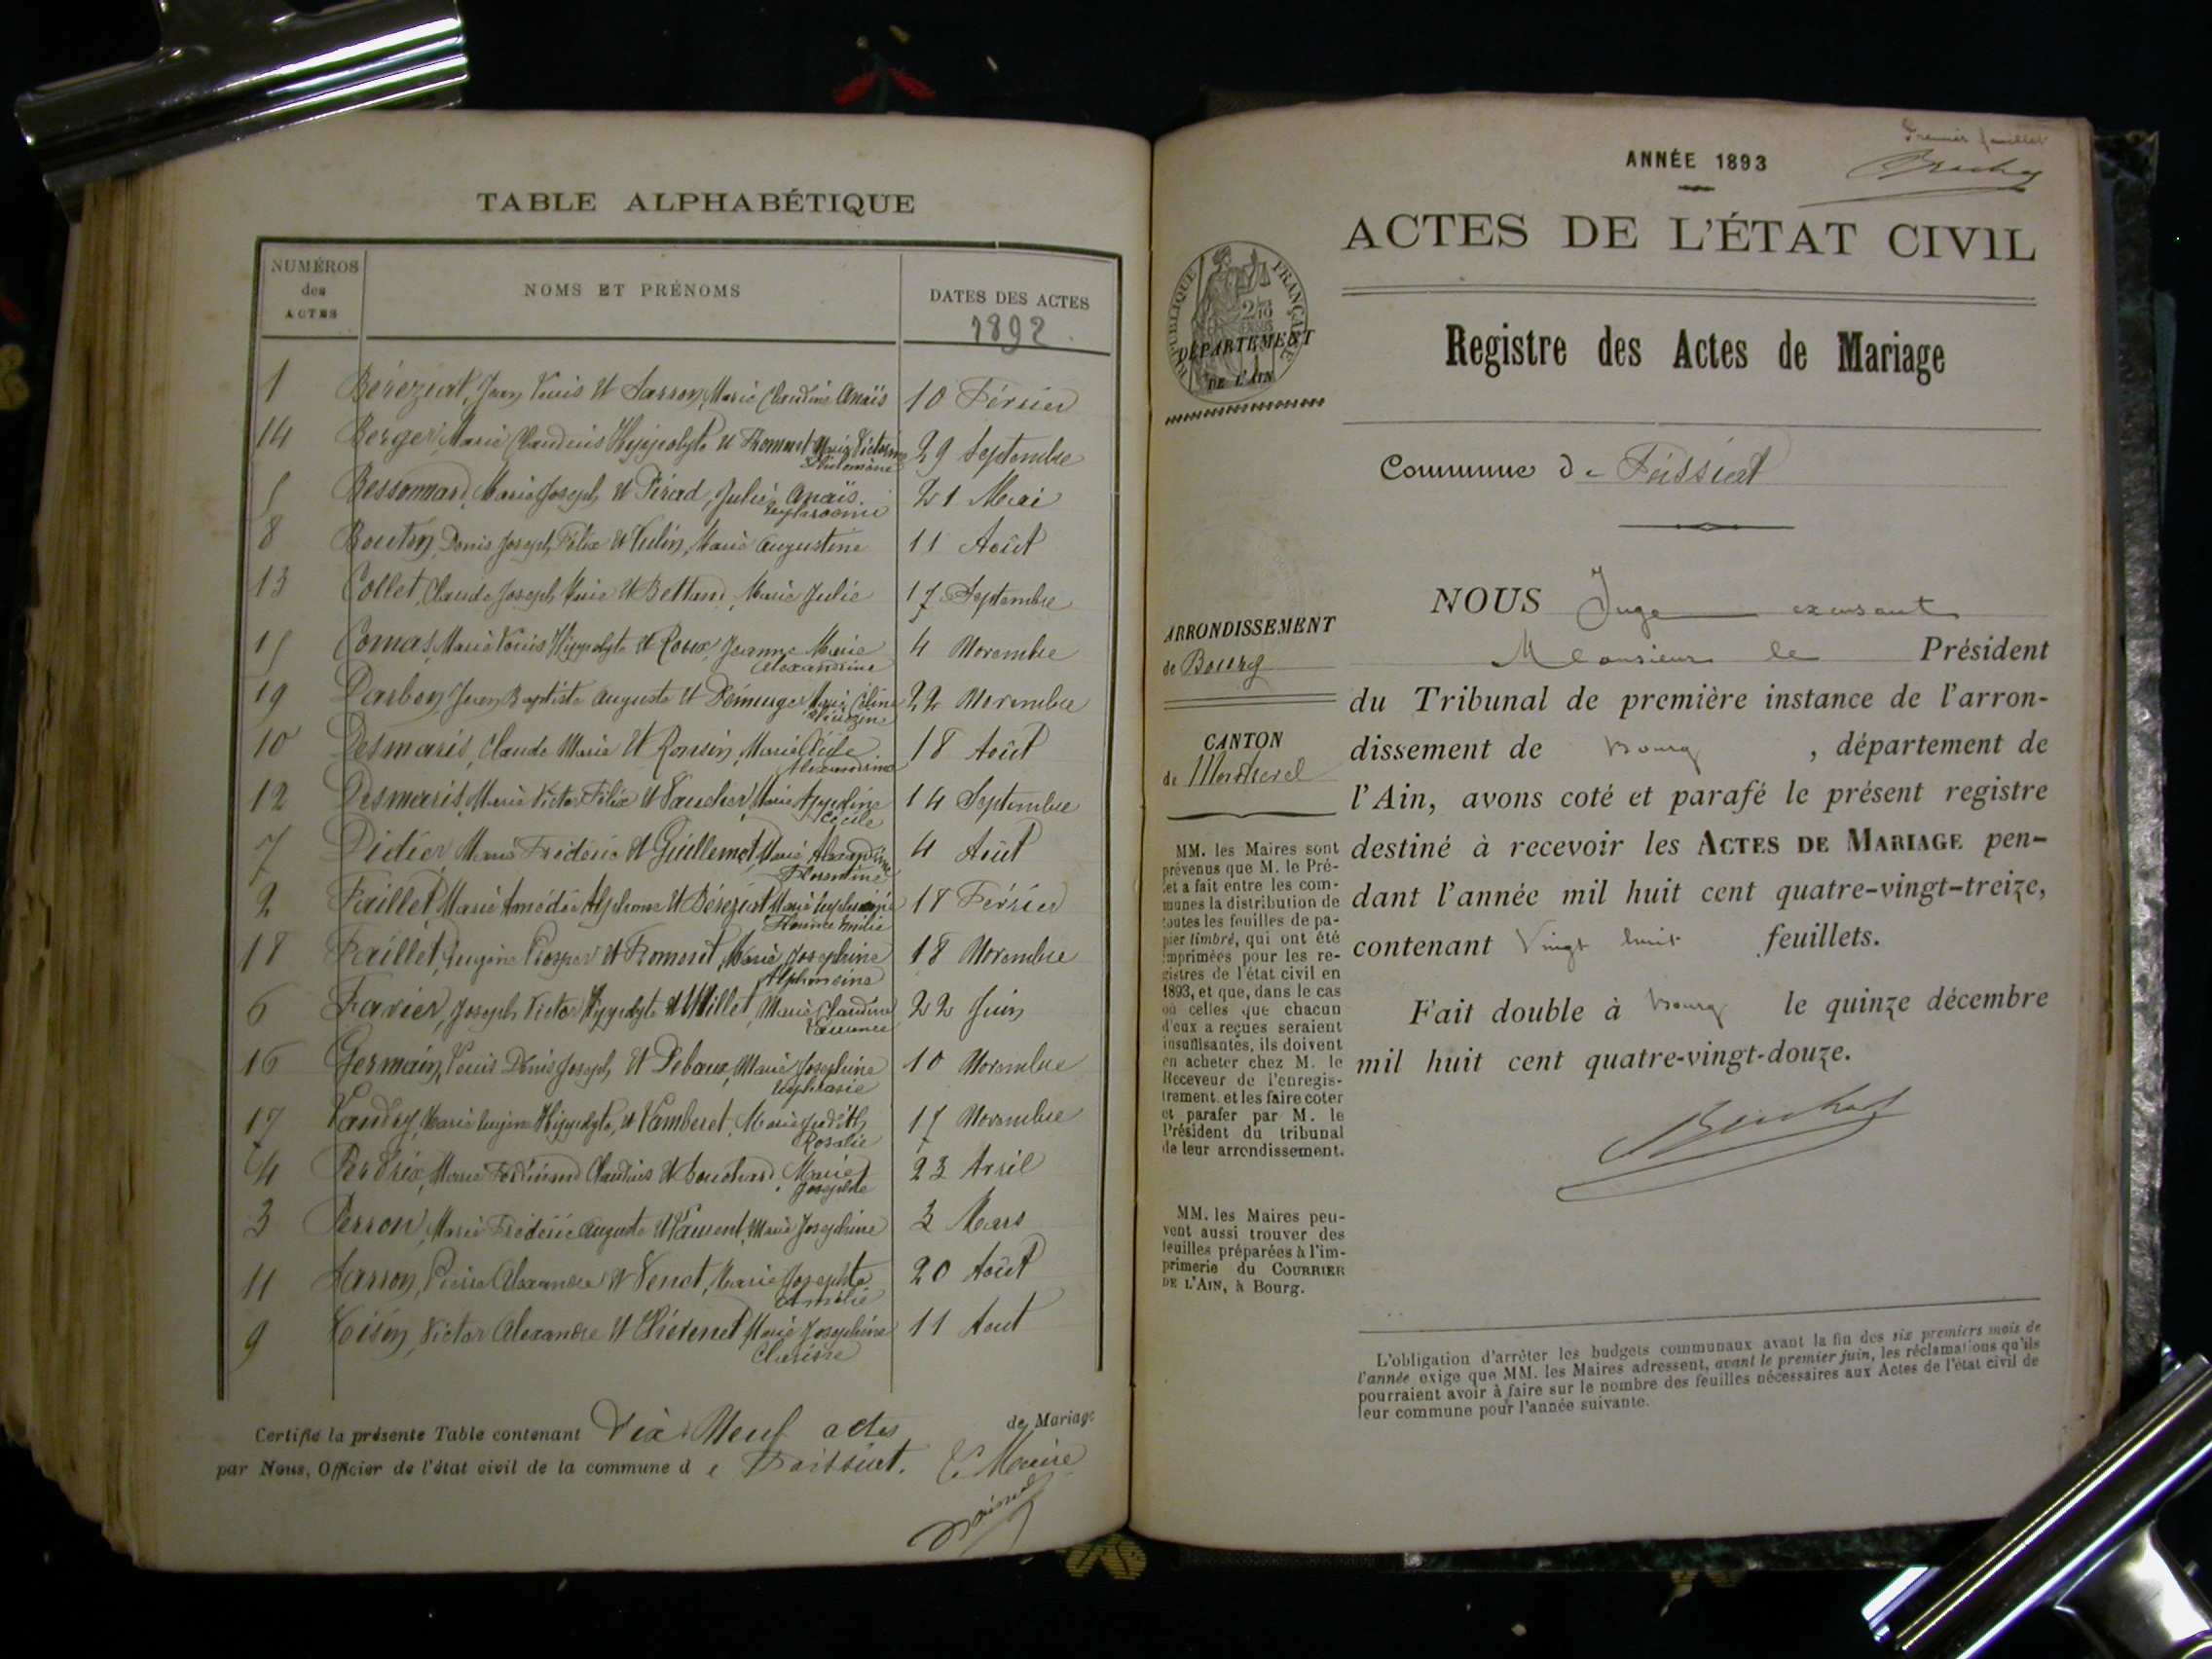 TABLE ALPHABÉTIQUE
NUMÉROS
des
ACTES
NOMS ET PRÉNOMS
DATES DES ACTES
1892.
1 Béréziat, Jean Louis et Sarron, Marie Claudine Anaïs 10 Février
14 Berger, Marie Claudius Hyppolyte et Romand Marie Victorine 29 Septembre
Philomène
5 Bessonnard, Marie Joseph et Pirad, Julie Anaïs 21 Mai
Euphrosine
8 Bouton, Denis Joseph Félix et Vulin, Marie Augustine 11 Août
13 Collet, Claude Joseph Marie et Bettand, Marie Julie 17 Septembre
15 Comas, Marie Louis Hyppolyte et Roux, Jeanne Marie 4 Novembre
Alexandrine
19 Darbon, Jean Baptiste Auguste et Pémuger Marie Céline 22 Novembre
10 Desmaris, Claude Marie et Ronsin, Marie 18 Août
Alexandrine
12 Desmaris, Marie Victor Félix et Vauclier, Marie Appoline 14 Septembre
Cécile
7 Didier, Marie Frédéric et Guillemot, Marie Alexandrine 4 Août
Florentine
2 Faillet, Marie Amédée Alphonse et Béréziat Marie 18 Février
Florence Emilie
18 Faillet, Eugène Prosper et Romand, Marie Josephine 18 Novembre
Alphonsine
6 Favier, Joseph Victor Hyppolyte et Millet, Marie Claudine 22 Juin
Laurence
16 Germain, Louis Denis Joseph, et Debaux, Marie Josephine 10 Novembre
Euphrasie
17 Landry, Marie Eugène Hyppolyte, et Vamberet, Marie Judith 17 Novembre
Rosalie
4 Perdrix, Marie Ferdinand Claudius et Bouchard, Marie 23 Avril
Josephte
3 Perron, Marie Frédéric Auguste et Laurent, Marie Josephine 3 Mars
11 Sarron, Pierre Alexandre et Venet, Marie Josephte 20 Août
Amélie
9 Voisin, Victor Alexandre et Thévenet Marie Josephine 11 Aout
Clarisse
Certifié la présente Table contenant Dix Neuf actes de Mariage
par Nous, Officier de l'état civil de la commune de Foissiat. Le Maire
Premier feuillet
ANNÉE 1893
ACTES DE L'ÉTAT CIVIL
RÉPUBLIQUE FRANÇAISE
DÉPARTEMENT
DE L'AIN
Registre des Actes de Mariage
Commune de Foissiat
ARRONDISSEMENT
de Bourg
CANTON
de Montrevel
MM. les Maires sont
prévenus que M. le Pré-
fet a fait entre les com-
munes la distribution de
toutes les feuilles de pa-
pier timbré, qui ont été
imprimées pour les re-
gistres de l'état civil en
1893, et que, dans le cas
où celles que chacun
d'eux a reçues seraient
insuffisantes, ils doivent
en acheter chez M. le
Receveur de l'enregis-
trement et les faire coter
et parafer par M. le
Président du tribunal
de leur arrondissement.
MM. les Maires peu-
vent aussi trouver des
feuilles préparées à l'im-
primerie du COURRIER
DE L'AIN, à Bourg.
NOUS Juge excusant
Monsieur le Président
du Tribunal de première instance de l'arron-
dissement de Bourg, département de
l'Ain, avons coté et parafé le présent registre
destiné à recevoir les ACTES DE MARIAGE pen-
dant l'année mil huit cent quatre-vingt-treize,
contenant Vingt huit feuillets.
Fait double à Bourg le quinze décembre
mil huit cent quatre-vingt-douze.
L'obligation d'arrêter les budgets communaux avant la fin des six premiers mois de
l'année exige que MM. les Maires adressent, avant le premier juin, les réclamations qu'ils
pourraient avoir à faire sur le nombre des feuilles nécessaires aux Actes de l'état civil de
leur commune pour l'année suivante.